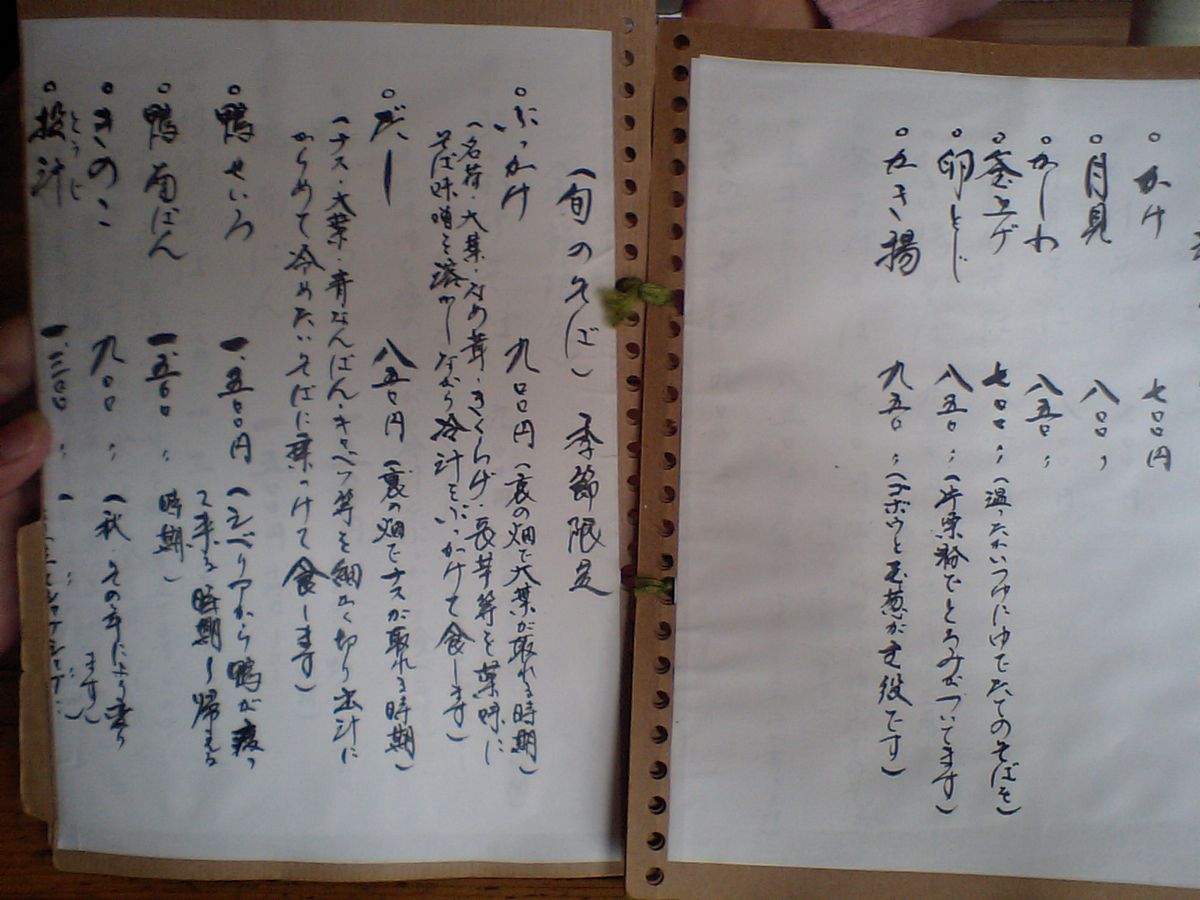 ○かけ 七〇〇円
○月見 八〇〇〃
○かしわ 八五〇〃
○釜上げ 七〇〇〃(温ったかいつゆにゆでたてのそばを)
○卵とじ 八五〇〃(片栗粉でとろみがついてます)
○かき揚 九五〇〃(ゴボウと玉葱が主役です)
(旬のそば) 季節限定
○ぶっかけ 九〇〇円(裏の畑で大葉が取れる時期)
(名荷・大葉・なめ茸・きくらげ・長芋等を薬味に
そば味噌を溶かしながら冷汁をぶっかけて食します)
○だし 八五〇円(裏の畑でナスが取れる時期)
(ナス・大葉・青なんばん・キャベツ等を細かく切り出汁に
からめて冷めたいそばに乗っけて食します)
○鴨せいろ 一、五〇〇円(シベリアから鴨が渡っ
て来る時期〜帰える
○鴨南ばん 一、五〇〇〃 時期)
○きのこ 九〇〇〃(秋・その年により
ます)
○投汁 とうじ 一、三〇〇〃